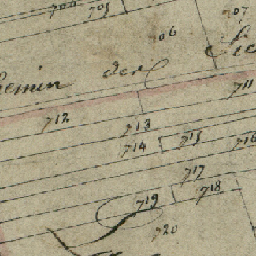 708 709
706
707
hemin der
711
712
713
714 715 716
717
718
719
720